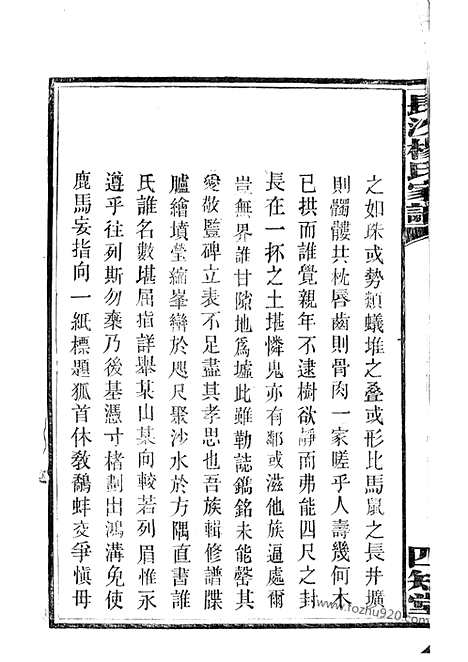 長沙楊氏家譜
之如珠或勢類蟻堆之叠或形比馬鼠之長井壙
則髑髏共枕唇齒則骨肉一家嗟乎人壽幾何木
已拱而誰覺親年不逮樹欲靜而弗能四尺之封
長在一抔之土堪憐鬼亦有鄰或滋他族逼處爾
豈無界誰甘隙地爲墟此雖勒誌鐫銘未能罄其
愛敬監碑立表不足盡其孝思也吾族輯修譜牒
臚繪墳塋縮峯巒於咫尺聚沙水於方隅直書誰
氏誰名數堪屈指詳舉某山某向較若列眉惟永
遵乎往列斯勿棄乃後基憑寸楮劃出鴻溝免使
鹿馬妄指向一紙標題狐首休敎鷸蚌交爭愼毋
四知堂
www.fozhu79.com